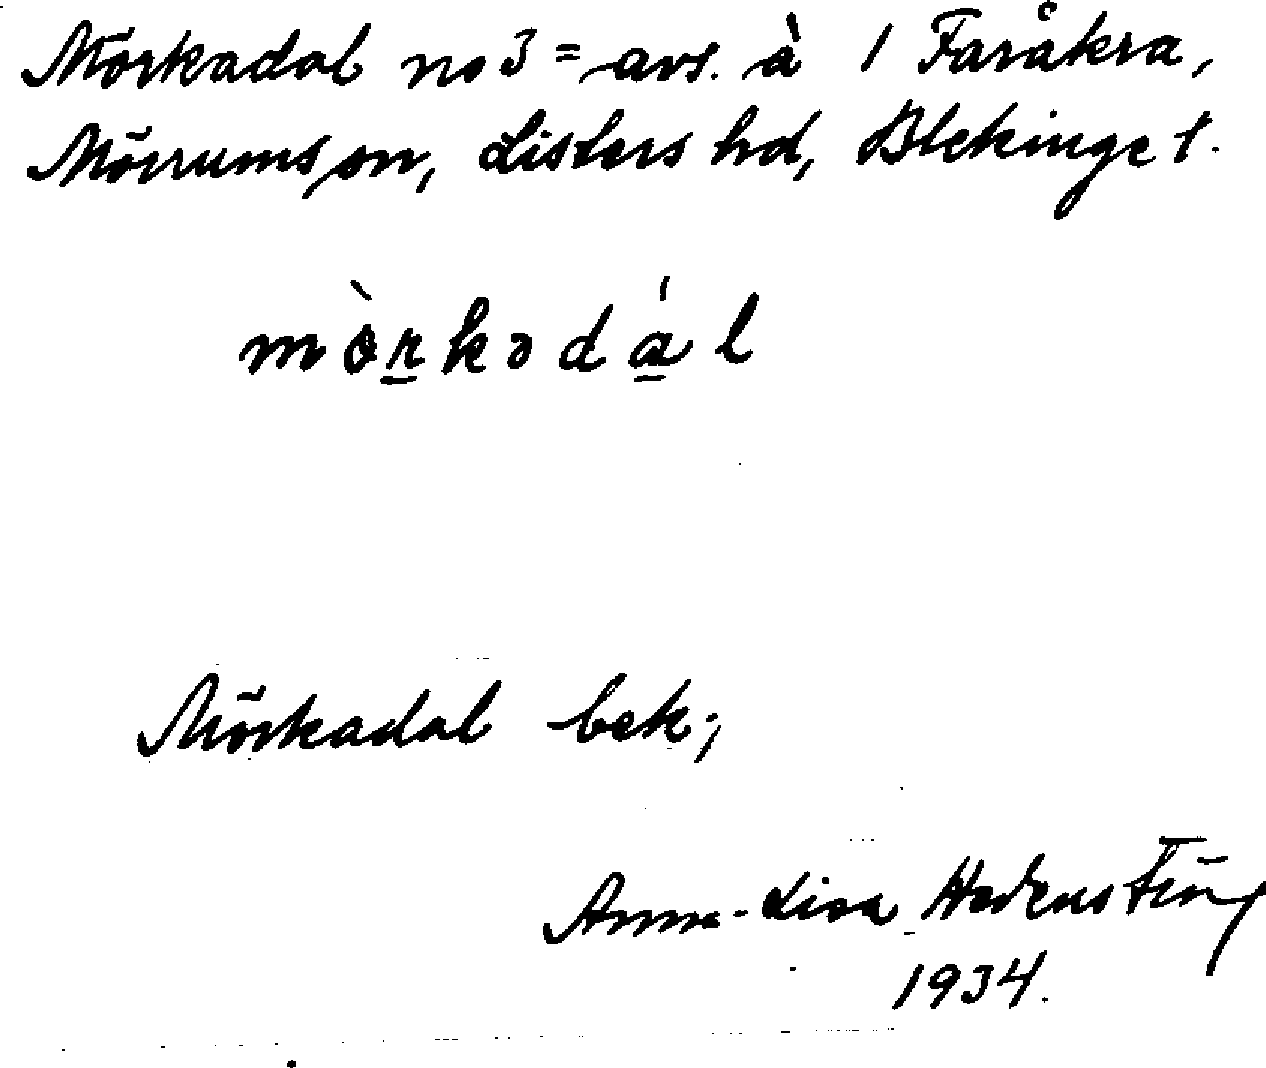 Mörkadal no 3 = avs. à 1 Faråkra,
Mörrums sn, Listers hd, Blekinge t.
mὸrkədál
Mörkadal bek;
Anna-Lisa
1934.